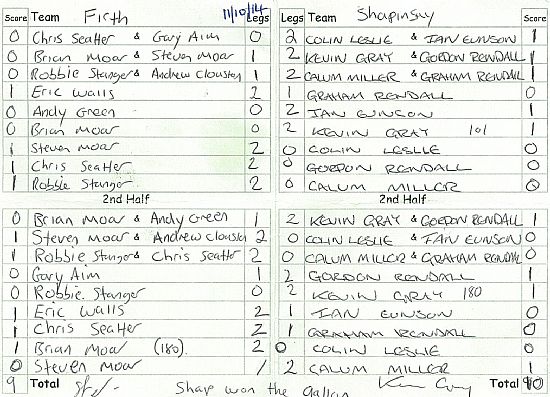 Score Team Firth 11/10/14 Legs Legs Team Shapinsay Score
0 Chris Seatter & Gary Aim 0 2 COLIN LESLIE & IAN EUNSON 1
0 Brian Moar & Steven Moar 1 2 KEVIN GRAY & GORDON RENDALL 1
0 Robbie Stanger & Andrew Clouston 1 2 CALUM MILLER & GRAHAM RENDALL 1
1 Eric Walls 2 1 GRAHAM RENDALL 0
0 Andy Green 0 2 IAN EUNSON 1
0 Brian Moar 0 2 KEVIN GRAY 101 1
1 Steven Moar 2 0 COLIN LESLIE 0
1 Chris Seatter 2 0 GORDON RENDALL 0
1 Robbie Stanger 2 0 CALUM MILLER 0
2nd Half 2nd Half
0 Brian Moar & Andy Green 1 2 KEVIN GRAY & GORDON RENDALL 1
1 Steven Moar & Andrew Clouston 2 0 COLIN LESLIE & IAN EUNSON 0
1 Robbie Stanger & Chris Seatter 2 0 CALUM MILLER & GRAHAM RENDALL 0
0 Gary Aim 1 2 GORDON RENDALL 1
0 Robbie Stanger 0 2 KEVIN GRAY 180 1
1 Eric Walls 2 1 IAN EUNSON 0
1 Chris Seatter 2 1 GRAHAM RENDALL 0
1 Brian Moar (180). 2 0 COLIN LESLIE 0
0 Steven Moar 1 2 CALUM MILLER 1
9 Total Shap won the gallon Total